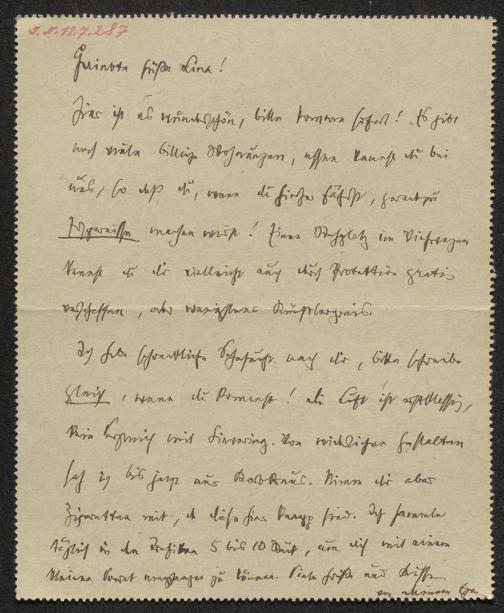 J.N. 127.287
Geliebte süße Lina!
Hier ist es wunderschön, bitte komme sofort! Es gibt
noch viele billige Wohnungen, essen kannst du bei
uns, so daß du, wenn du hieher fährst, geradezu
Ersparnisse machen wirst! Einen Sitzplatz im
kannst du dir vielleicht auch durch Protektion gratis
verschaffen, oder wenigstens Künstlerpreis.
Ich habe schreckliche Sehnsucht nach dir, bitte schreibe
gleich, wann du kommst! Die Luft ist erstklassig,
kein Vergleich mit Sievering. Von wirklichen Gestalten
sah ich bis jetzt nur Nimm dir aber
Zigaretten mit, da diese hier knapp sind. Ich sammle
täglich in den Trafiken 5 bis 10 Stück, um dich mit einem
kleinen Vorrat empfangen zu können. Viele Grüße und Küsse
von deinem